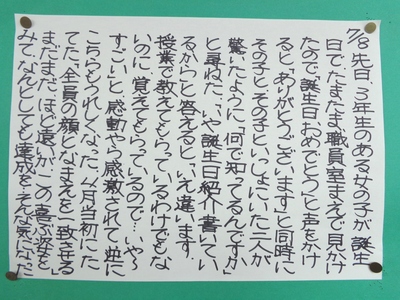 7/8 先日、3年生のある女の子が誕生
日で、たまたま職員室まえで見かけ
たので「誕生日おめでとう」と声をかけ
ると「ありがとうございます」と同時に
その子と、その子といっしょにいた二人が
驚いたように「何で知ってるんですか」
と尋ねた。「いや誕生日紹介書いてい
るから」と答えると「いえ違います。
授業で教えてもらっているわけでもな
いのに覚えてもらっているので…いや〜
すごい」と感動やら感激されて逆に
こちらもうれしくなった。4月当初にた
てた、「全員の顔となまえを一致させる」
まだまだほど遠いが、この喜ぶ姿を
みて、なんとしても達成をそんな気になった